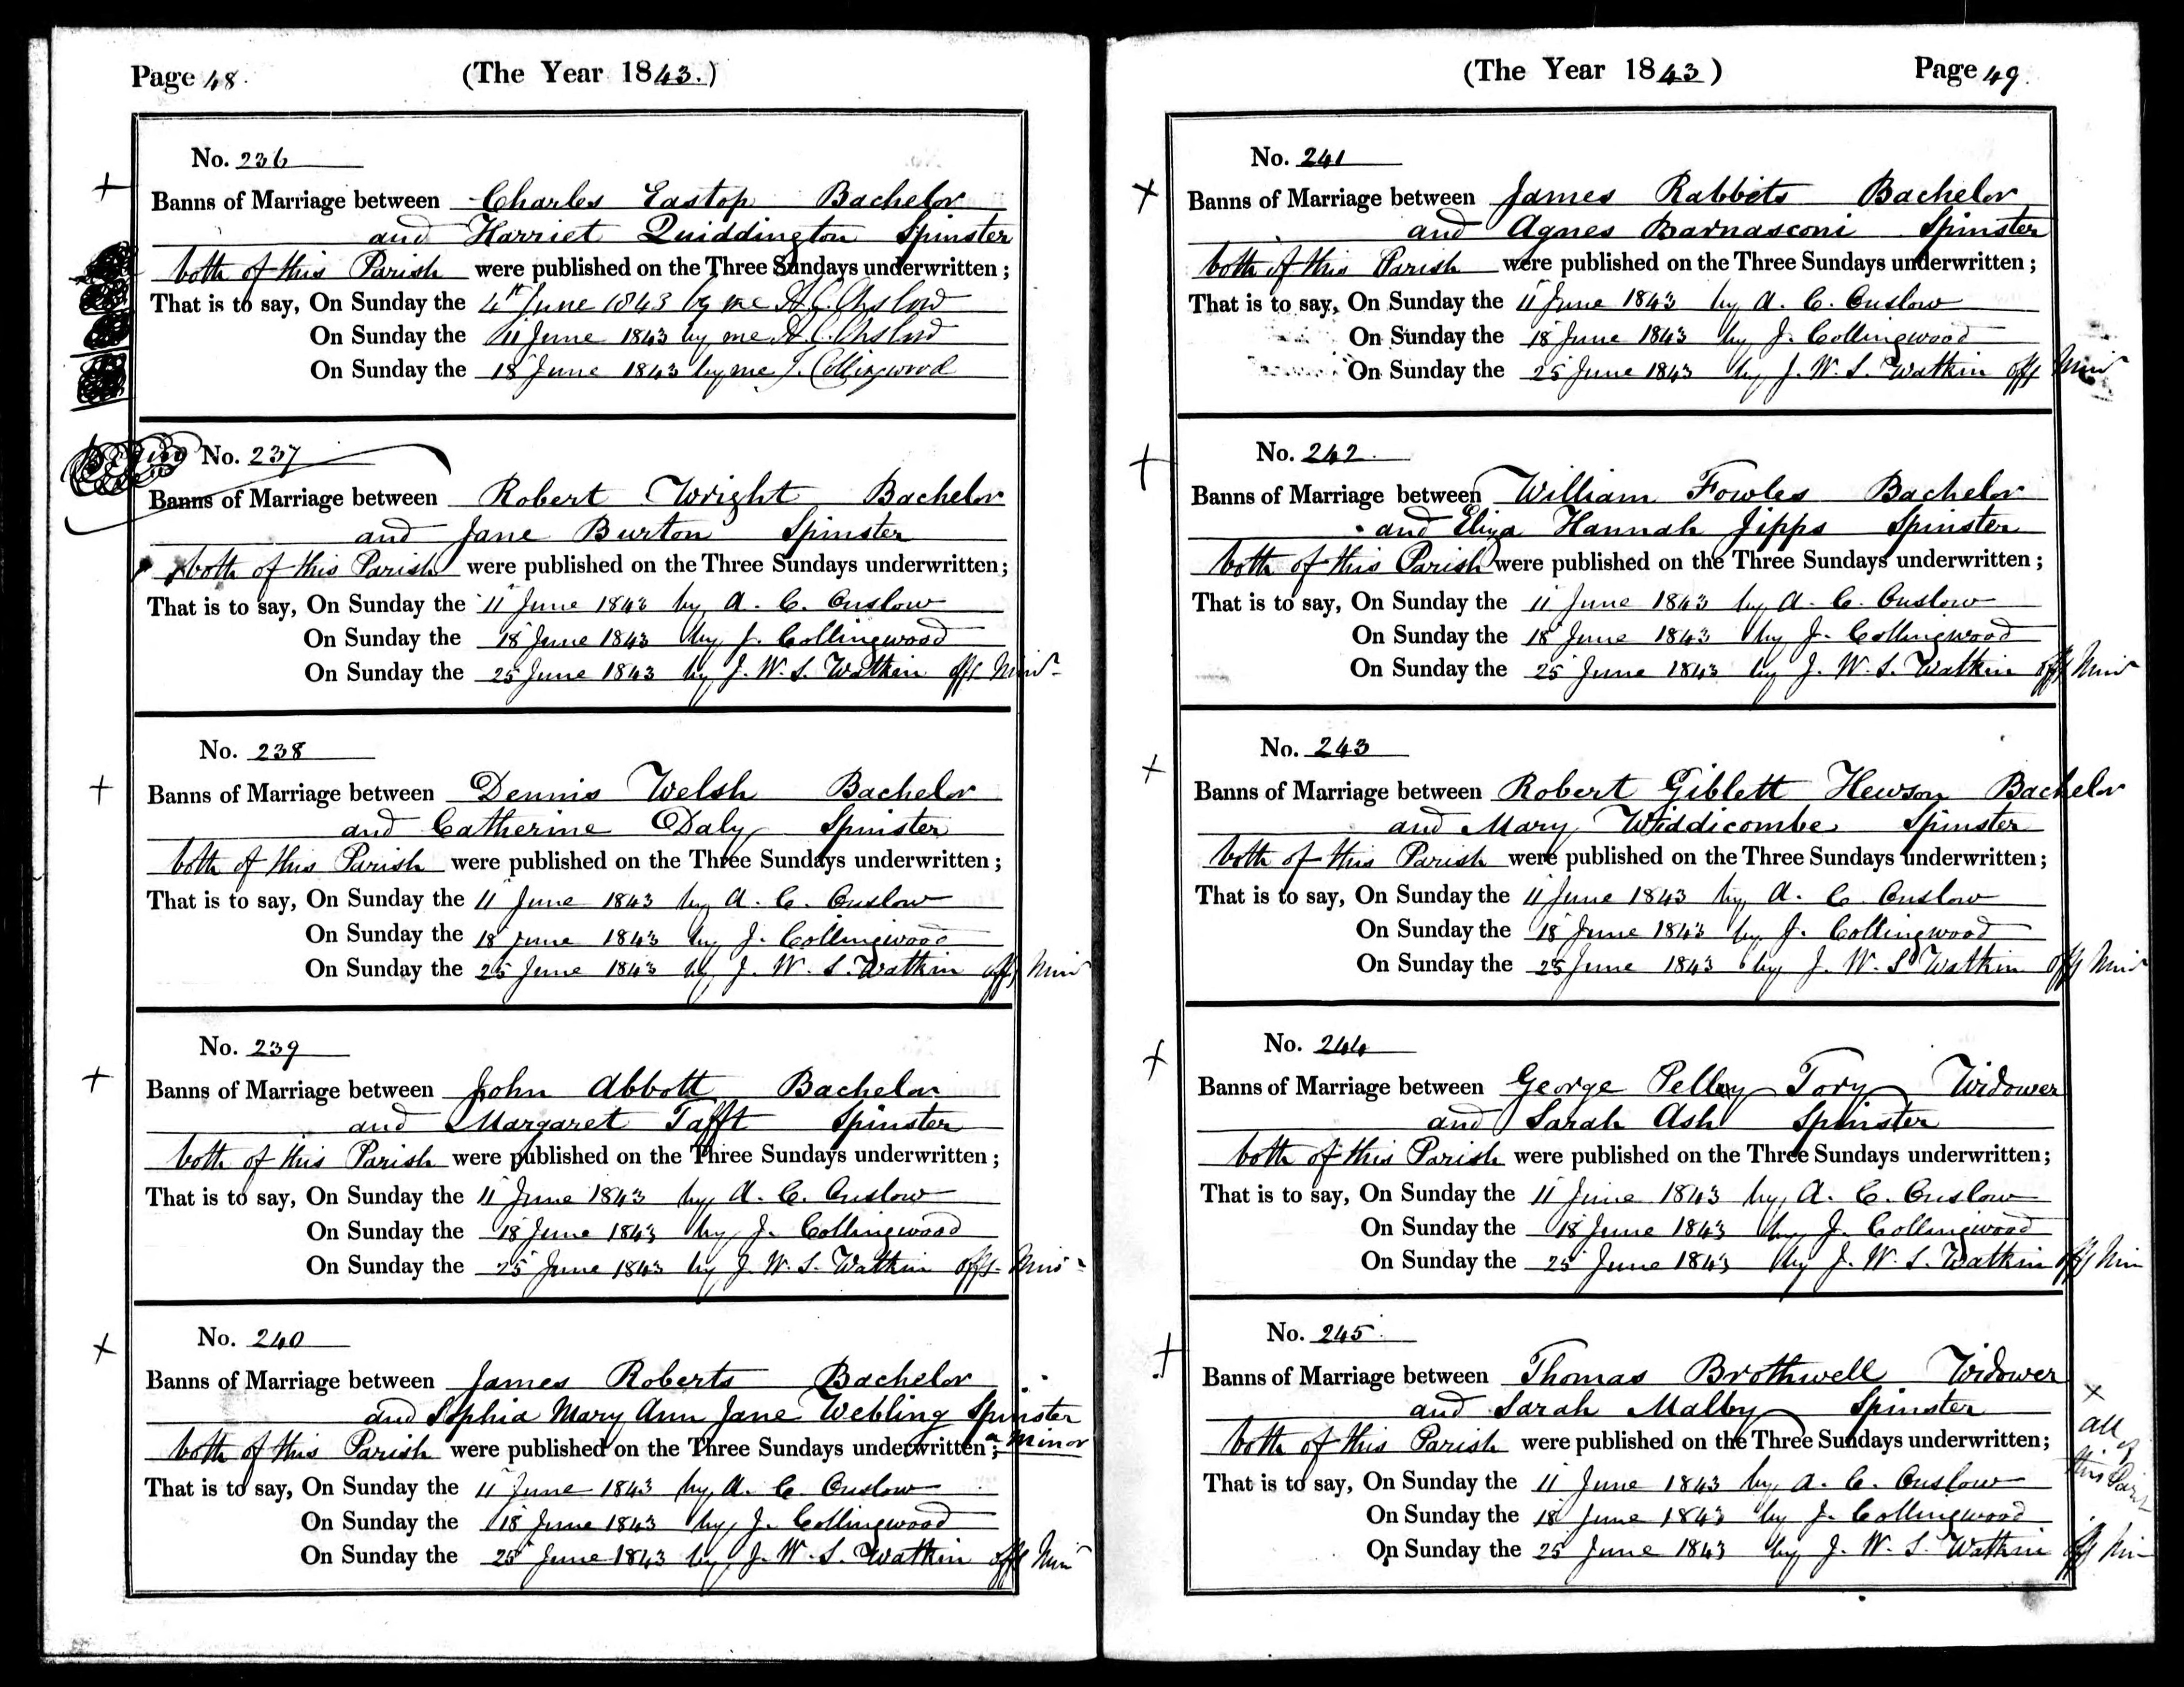 Page 48. (The Year 1843.)
No. 236
Banns of Marriage between Charles Eastop Bachelor
and Harriet Quiddington Spinster
both of this Parish were published on the Three Sundays underwritten;
That is to say, On Sunday the 4th June 1843 by me A. C. Onslow
On Sunday the 11 June 1843 by me A. C. Onslow
On Sunday the 18 June 1843 by me J. Collingwood
No. 237
Banns of Marriage between Robert Wright Bachelor
and Jane Burton Spinster
both of this Parish were published on the Three Sundays underwritten;
That is to say, On Sunday the 11 June 1843 by A. C. Onslow
On Sunday the 18 June 1843 by J. Collingwood
On Sunday the 25 June 1843 by J. W. S. Watkin offg Minr
No. 238
Banns of Marriage between Dennis Welsh Bachelor
and Catherine Daly Spinster
both of this Parish were published on the Three Sundays underwritten;
That is to say, On Sunday the 11 June 1843 by A. C. Onslow
On Sunday the 18 June 1843 by J. Collingwood
On Sunday the 25 June 1843 by J. W. S. Watkin offg Minr
No. 239
Banns of Marriage between John Abbott Bachelor
and Margaret Tafft Spinster
both of this Parish were published on the Three Sundays underwritten;
That is to say, On Sunday the 11 June 1843 by A. C. Onslow
On Sunday the 18 June 1843 by J. Collingwood
On Sunday the 25 June 1843 by J. W. S. Watkin offg Minr
No. 240
Banns of Marriage between James Roberts Bachelor
and Sophia Mary Ann Jane Webling Spinster
a Minor
both of this Parish were published on the Three Sundays underwritten;
That is to say, On Sunday the 11 June 1843 by A. C. Onslow
On Sunday the 18 June 1843 by J. Collingwood
On Sunday the 25 June 1843 by J. W. S. Watkin offg Minr
(The Year 1843) Page 49.
No. 241
Banns of Marriage between James Rabbits Bachelor
and Agnes Barnasconi Spinster
both of this Parish were published on the Three Sundays underwritten;
That is to say, On Sunday the 11 June 1843 by A. C. Onslow
On Sunday the 18 June 1843 by J. Collingwood
On Sunday the 25 June 1843 by J. W. S. Watkin offg Minr
No. 242.
Banns of Marriage between William Fowles Bachelor
and Eliza Hannah Jipps Spinster
both of this Parish were published on the Three Sundays underwritten;
That is to say, On Sunday the 11 June 1843 by A. C. Onslow
On Sunday the 18 June 1843 by J. Collingwood
On Sunday the 25 June 1843 by J. W. S. Watkin offg Minr
No. 243
Banns of Marriage between Robert Giblett Hewson Bachelor
and Mary Widdicombe Spinster
both of this Parish were published on the Three Sundays underwritten;
That is to say, On Sunday the 11 June 1843 by A. C. Onslow
On Sunday the 18 June 1843 by J. Collingwood
On Sunday the 25 June 1843 by J. W. S. Watkin offg Minr
No. 244
Banns of Marriage between George Pelley Tory Widower
and Sarah Ash Spinster
both of this Parish were published on the Three Sundays underwritten;
That is to say, On Sunday the 11 June 1843 by A. C. Onslow
On Sunday the 18 June 1843 by J. Collingwood
On Sunday the 25 June 1843 by J. W. S. Watkin offg Min
No. 245
Banns of Marriage between Thomas Brothwell Widower
and Sarah Malby Spinster
both of this Parish were published on the Three Sundays underwritten;
That is to say, On Sunday the 11 June 1843 by A. C. Onslow
On Sunday the 18 June 1843 by J. Collingwood
On Sunday the 25 June 1843 by J. W. S. Watkin offg Min
x
all of
this Parish